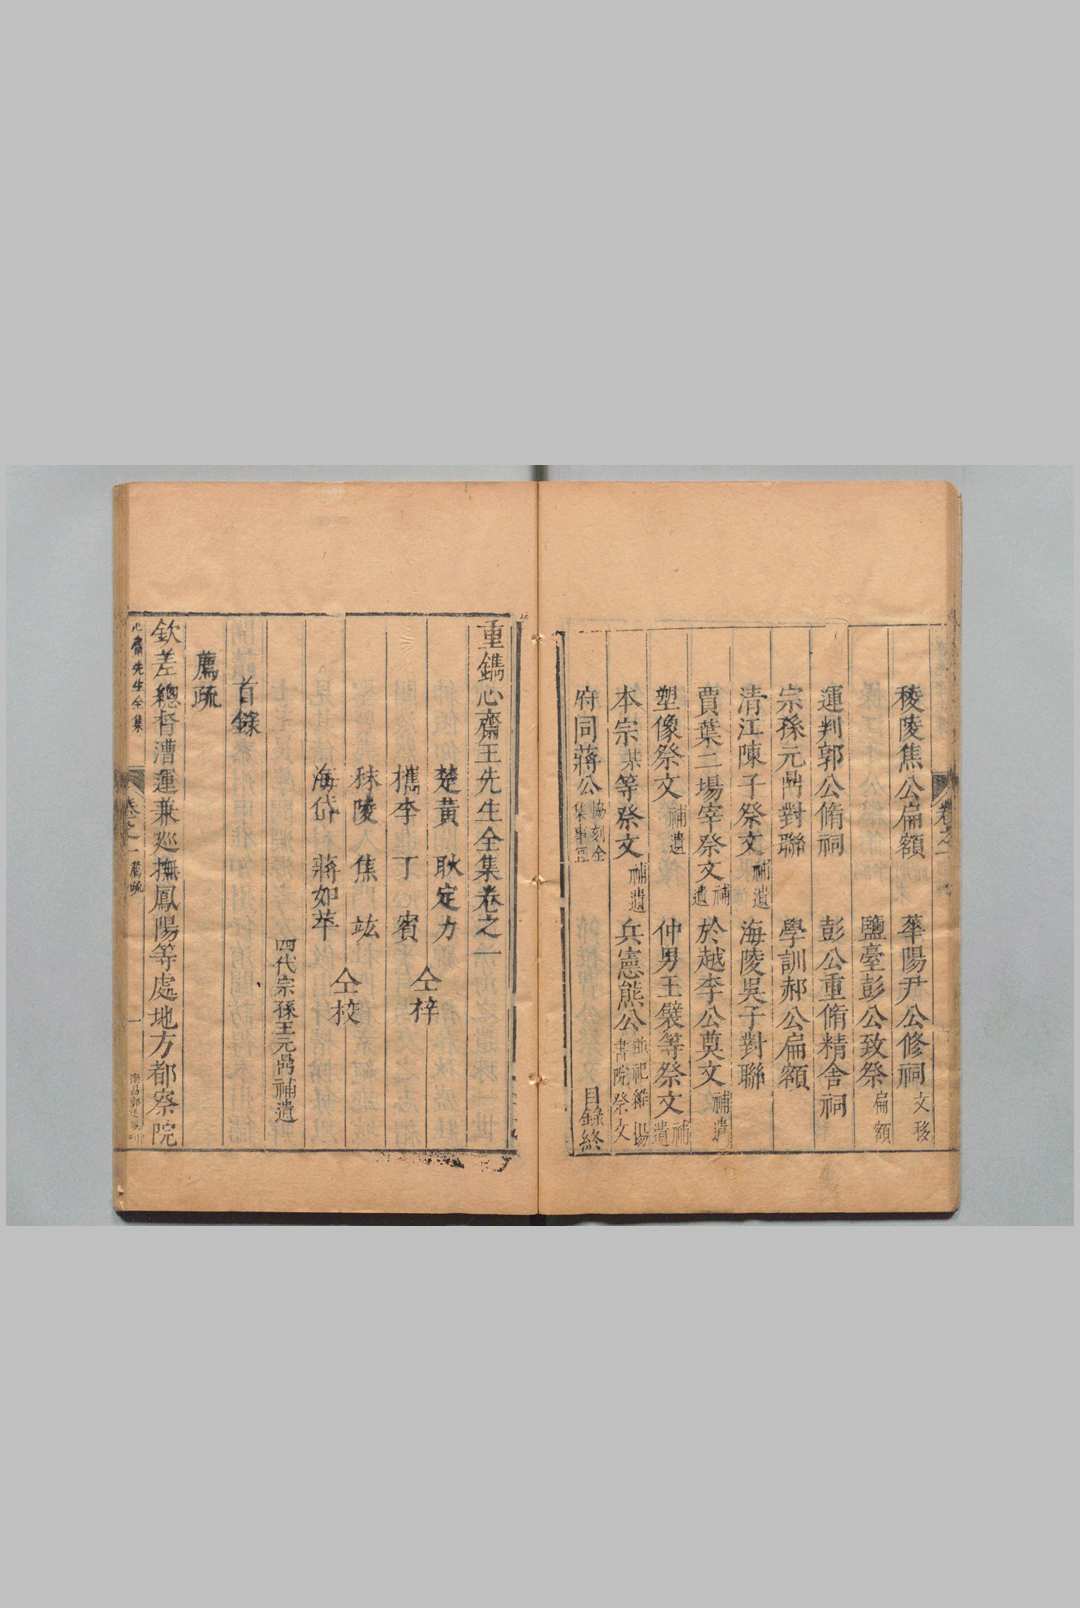 稜陵焦公扁額 華陽尹公修祠文移
鹽臺彭公致祭扁額
運判郭公脩祠 彭公重脩精舍祠
宗孫元鼎對聯 學訓郝公扁額
清江陳子祭文補遺 海陵吳子對聯
賈葉二場宰祭文補遺 於越李公奠文補遺
塑像祭文補遺 仲男王襞等祭文補遺
本宗某等祭文補遺 兵憲熊公並祀維揚書院祭文
府同蔣公協刻全集事蹟 目錄終
重鐫心齋王先生全集卷之一
楚黃 耿定力
檇李 丁賓 仝梓
秣陵 焦竑
海岱 蔣如苹 仝校
四代宗孫王元鼎補遺
首錄
薦疏
欽差總督漕運兼巡撫鳳陽等處地方都察院
心齋先生全集 卷之一 薦疏 一